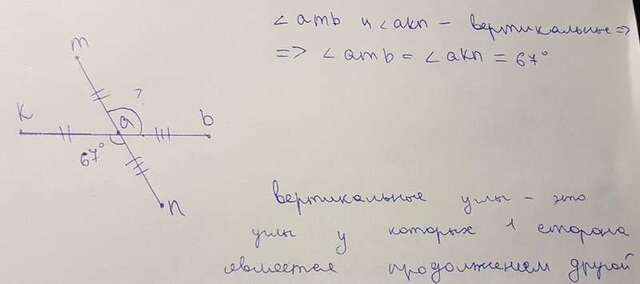 ∠ amb и ∠ акп – вертикальные =>
=> ∠ amb = ∠ акп = 67°
m
?
K
a
b
67°
n
вертикальные углы – это
углы у которых 1 сторона
является продолжением другой